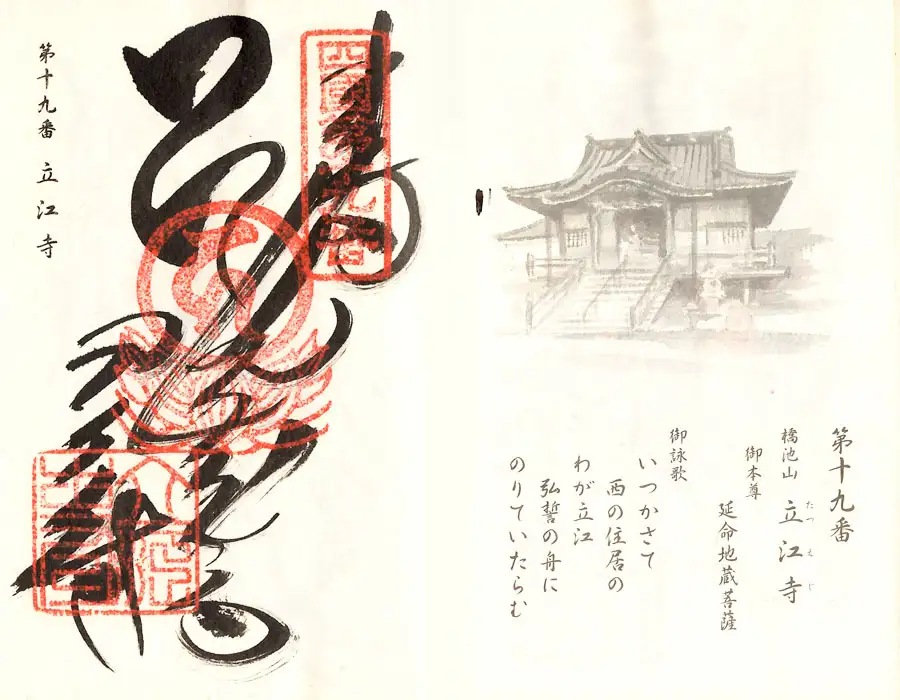 第十九番
橋池山 立江寺
たつえじ
御本尊
延命地蔵菩薩
御詠歌
いつかさて
西の住居の
わが立江
弘誓の舟に
のりていたらむ
四國第十九番
第十九番 立江寺